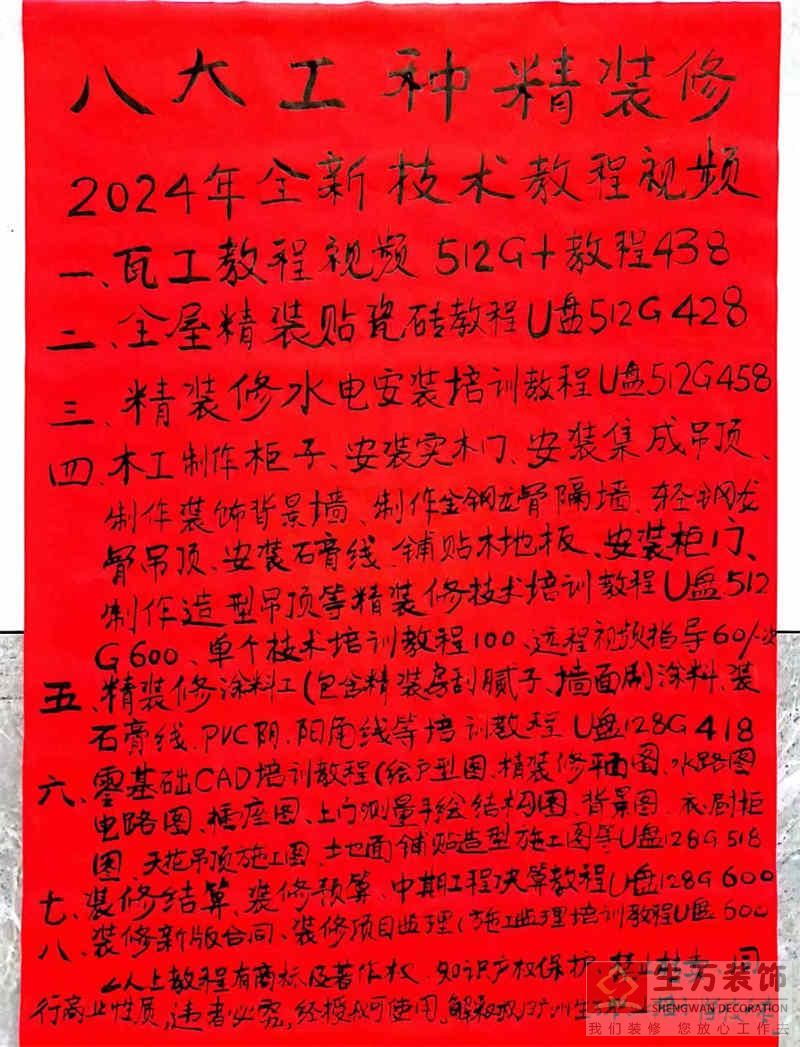 八大工种精装修
2024年全新技术教程视频
一、瓦工教程视频 512G+教程438
二、全屋精装贴瓷砖教程U盘512G428
三、精装修水电安装培训教程U盘512G458
四、木工制作柜子、安装实木门、安装集成吊顶、
制作装饰背景墙、制作金钢龙骨隔墙、轻钢龙
骨吊顶、安装石膏线、铺贴木地板、安装柜门、
制作造型吊顶等精装修技术培训教程U盘512
G600、单个技术培训教程100、远程视频指导60/次
五、精装修涂料工(包含精装刮腻子、墙面刷涂料、装
石膏线、PVC阴、阳角线等培训教程U盘128G418
六、零基础CAD培训教程(绘户型图、精装修平面图、水路图
电路图、插座图、上门测量手绘结构图、背景图、衣厨柜
图、天花吊顶施工图、土地面铺贴造型施工图等U盘128G518
七、装修结算、装修预算、中期工程决算教程U盘128G600
八、装修新版合同、装修项目监理(施工监理培训教程U盘600
以上教程有商标及著作权、知识产权保护、禁止
行商业性质,违者必究,经授权可使用,解释权
生万装饰
SHENGWAN DECORATION
我们装修 您放心工作去